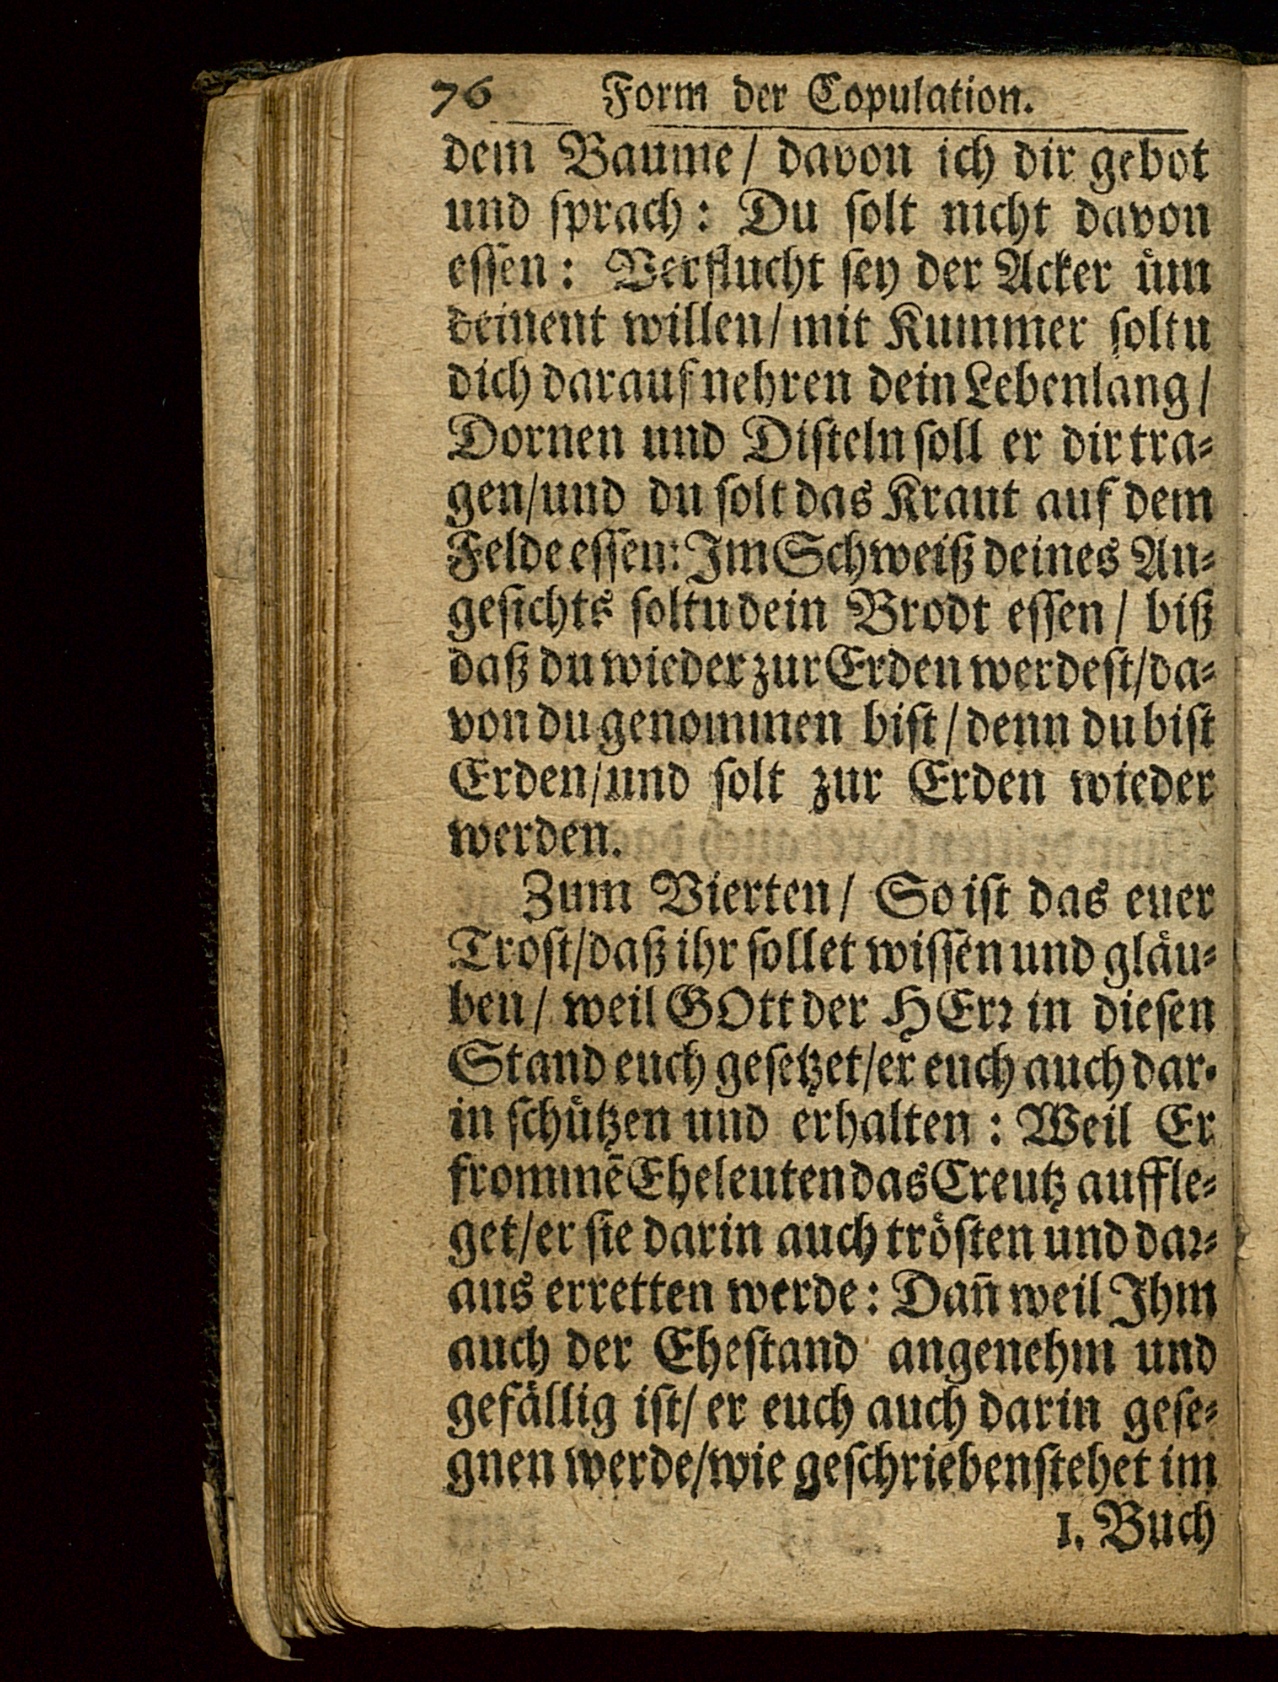 76 Form der Copulation.
dem Baume / davon ich dir gebot
und sprach: Du solt nicht davon
essen: Verflucht sey der Acker üm
deinent willen / mit Kummer soltu
dich darauf nehren dein Lebenlang /
Dornen und Disteln soll er dir tra-
gen / und du solt das Kraut auf dem
Felde essen: Im Schweiß deines An-
gesichts soltu dein Brodt essen / biß
daß du wieder zur Erden werdest / da-
von du genommen bist / denn du bist
Erden / und solt zur Erden wieder
werden.
Zum Vierten / So ist das euer
Trost / daß ihr sollet wissen und gläu-
ben / weil GOtt der HErr in diesen
Stand euch gesetzet / er euch auch dar-
in schützen und erhalten: Weil Er
frommē Eheleuten das Creutz auffle-
get / er sie darin auch trösten und dar-
aus erretten werde: Dañ weil Ihm
auch der Ehestand angenehm und
gefällig ist / er euch auch darin gese-
gnen werde / wie geschrieben stehet im
1. Buch